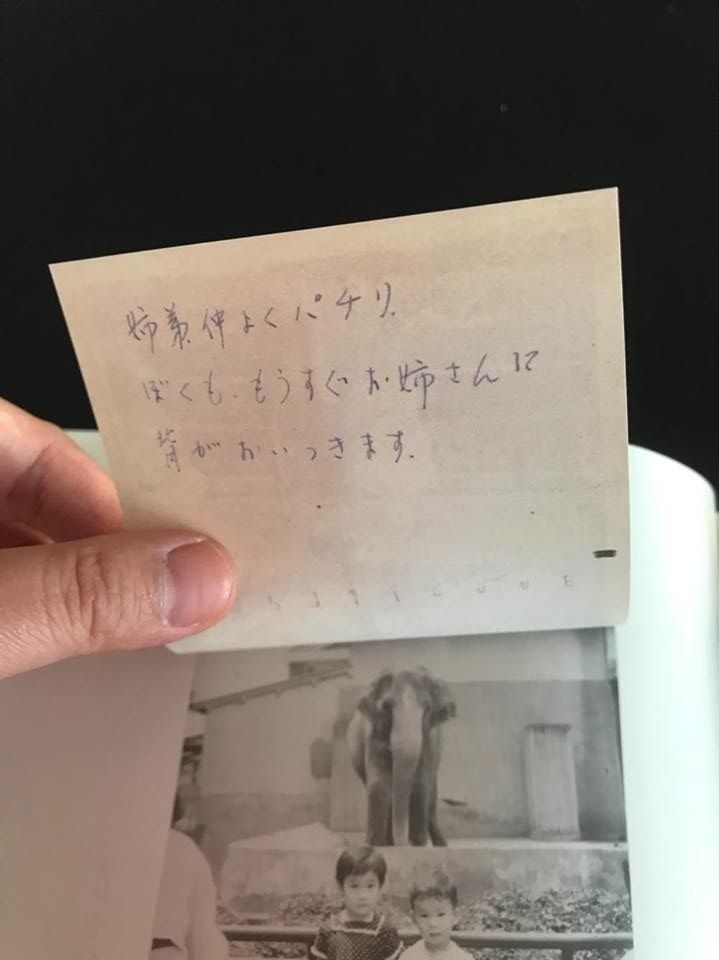 姉弟仲よくパチリ.
ぼくも、もうすぐお姉さんに
背がおいつきます.